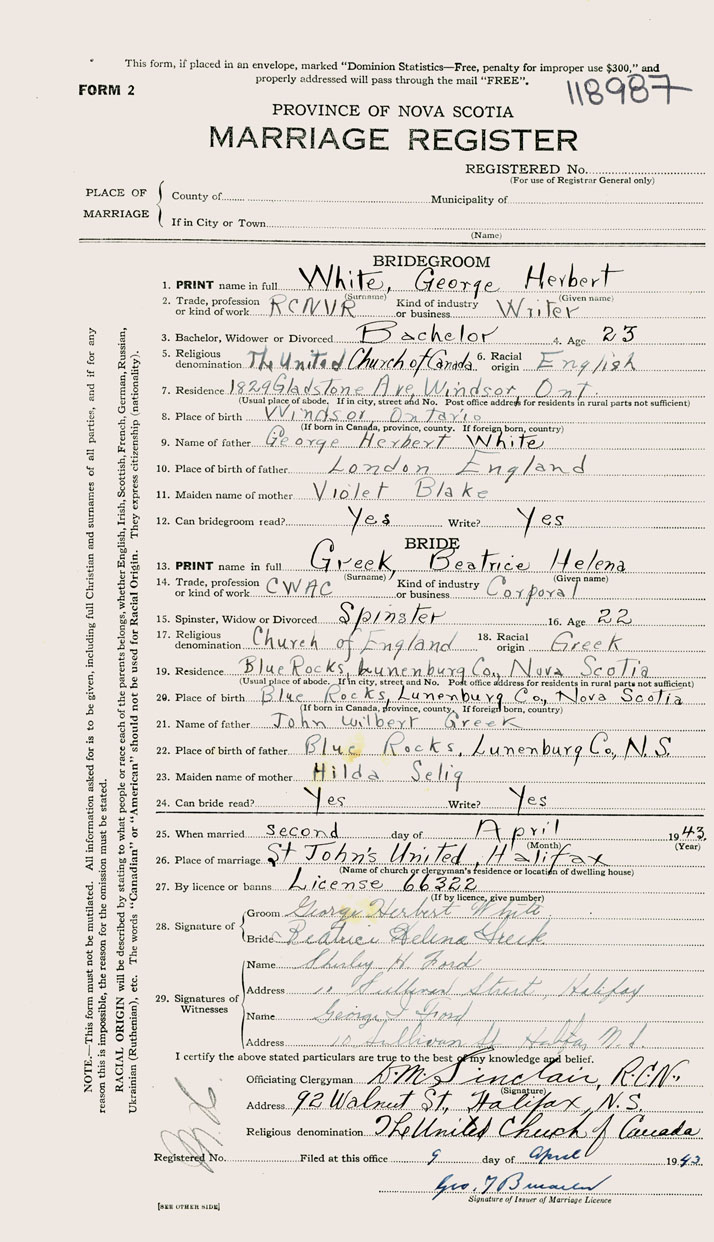 This form, if placed in an envelope, marked "Dominion Statistics—Free, penalty for improper use $300," and
properly addressed will pass through the mail "FREE".
FORM 2
118987
PROVINCE OF NOVA SCOTIA
MARRIAGE REGISTER
REGISTERED No.
(For use of Registrar General only)
PLACE OF MARRIAGE
County of Municipality of
If in City or Town
(Name)
BRIDEGROOM
1. PRINT name in full White, George Herbert
(Surname) (Given name)
2. Trade, profession or kind of work RCNVR Kind of industry or business Writer
3. Bachelor, Widower or Divorced Bachelor 4. Age 23
5. Religious denomination The United Church of Canada 6. Racial origin English
7. Residence 1829 Gladstone Ave, Windsor, Ont.
(Usual place of abode. If in city, street and No. Post office address for residents in rural parts not sufficient)
8. Place of birth Windsor, Ontario
(If born in Canada, province, county. If foreign born, country)
9. Name of father George Herbert White
10. Place of birth of father London England
11. Maiden name of mother Violet Blake
12. Can bridegroom read? Yes Write? Yes
BRIDE
13. PRINT name in full Greek, Beatrice Helena
(Surname) (Given name)
14. Trade, profession or kind of work CWAC Kind of industry or business Corporal
15. Spinster, Widow or Divorced Spinster 16. Age 22
17. Religious denomination Church of England 18. Racial origin Greek
19. Residence Blue Rocks, Lunenburg Co., Nova Scotia
(Usual place of abode. If in city, street and No. Post office address for residents in rural parts not sufficient)
20. Place of birth Blue Rocks, Lunenburg Co., Nova Scotia
(If born in Canada, province, county. If foreign born, country)
21. Name of father John Wilbert Greek
22. Place of birth of father Blue Rocks, Lunenburg Co, N.S.
23. Maiden name of mother Hilda Selig
24. Can bride read? Yes Write? Yes
25. When married second day of April 1943
(Month) (Year)
26. Place of marriage St John's United, Halifax
(Name of church or clergyman's residence or location of dwelling house)
27. By licence or banns License 66322
(If by licence, give number)
28. Signature of
Groom George Herbert White
Bride Beatrice Helena Greek
29. Signatures of Witnesses
Name Shirley H Ford
Address Sullivan Street, Halifax
Name George Ford
Address 10 Sullivan St Halifax N.S.
I certify the above stated particulars are true to the best of my knowledge and belief.
Officiating Clergyman D.M. Sinclair, R.C.N.,
(Signature)
Address 92 Walnut St, Halifax, N.S.
Religious denomination The United Church of Canada
Registered No. Filed at this office 9 day of April 1943
Geo.
Signature of Issuer of Marriage Licence
[SEE OTHER SIDE]
NOTE.—This form must not be mutilated. All information asked for is to be given, including full Christian and surnames of all parties, and if for any
reason this is impossible, the reason for the omission must be stated.
RACIAL ORIGIN will be described by stating to what people or race each of the parents belongs, whether English, Irish, Scottish, French, German, Russian,
Ukrainian (Ruthenian), etc. The words "Canadian" or "American" should not be used for Racial Origin. They express citizenship (nationality).